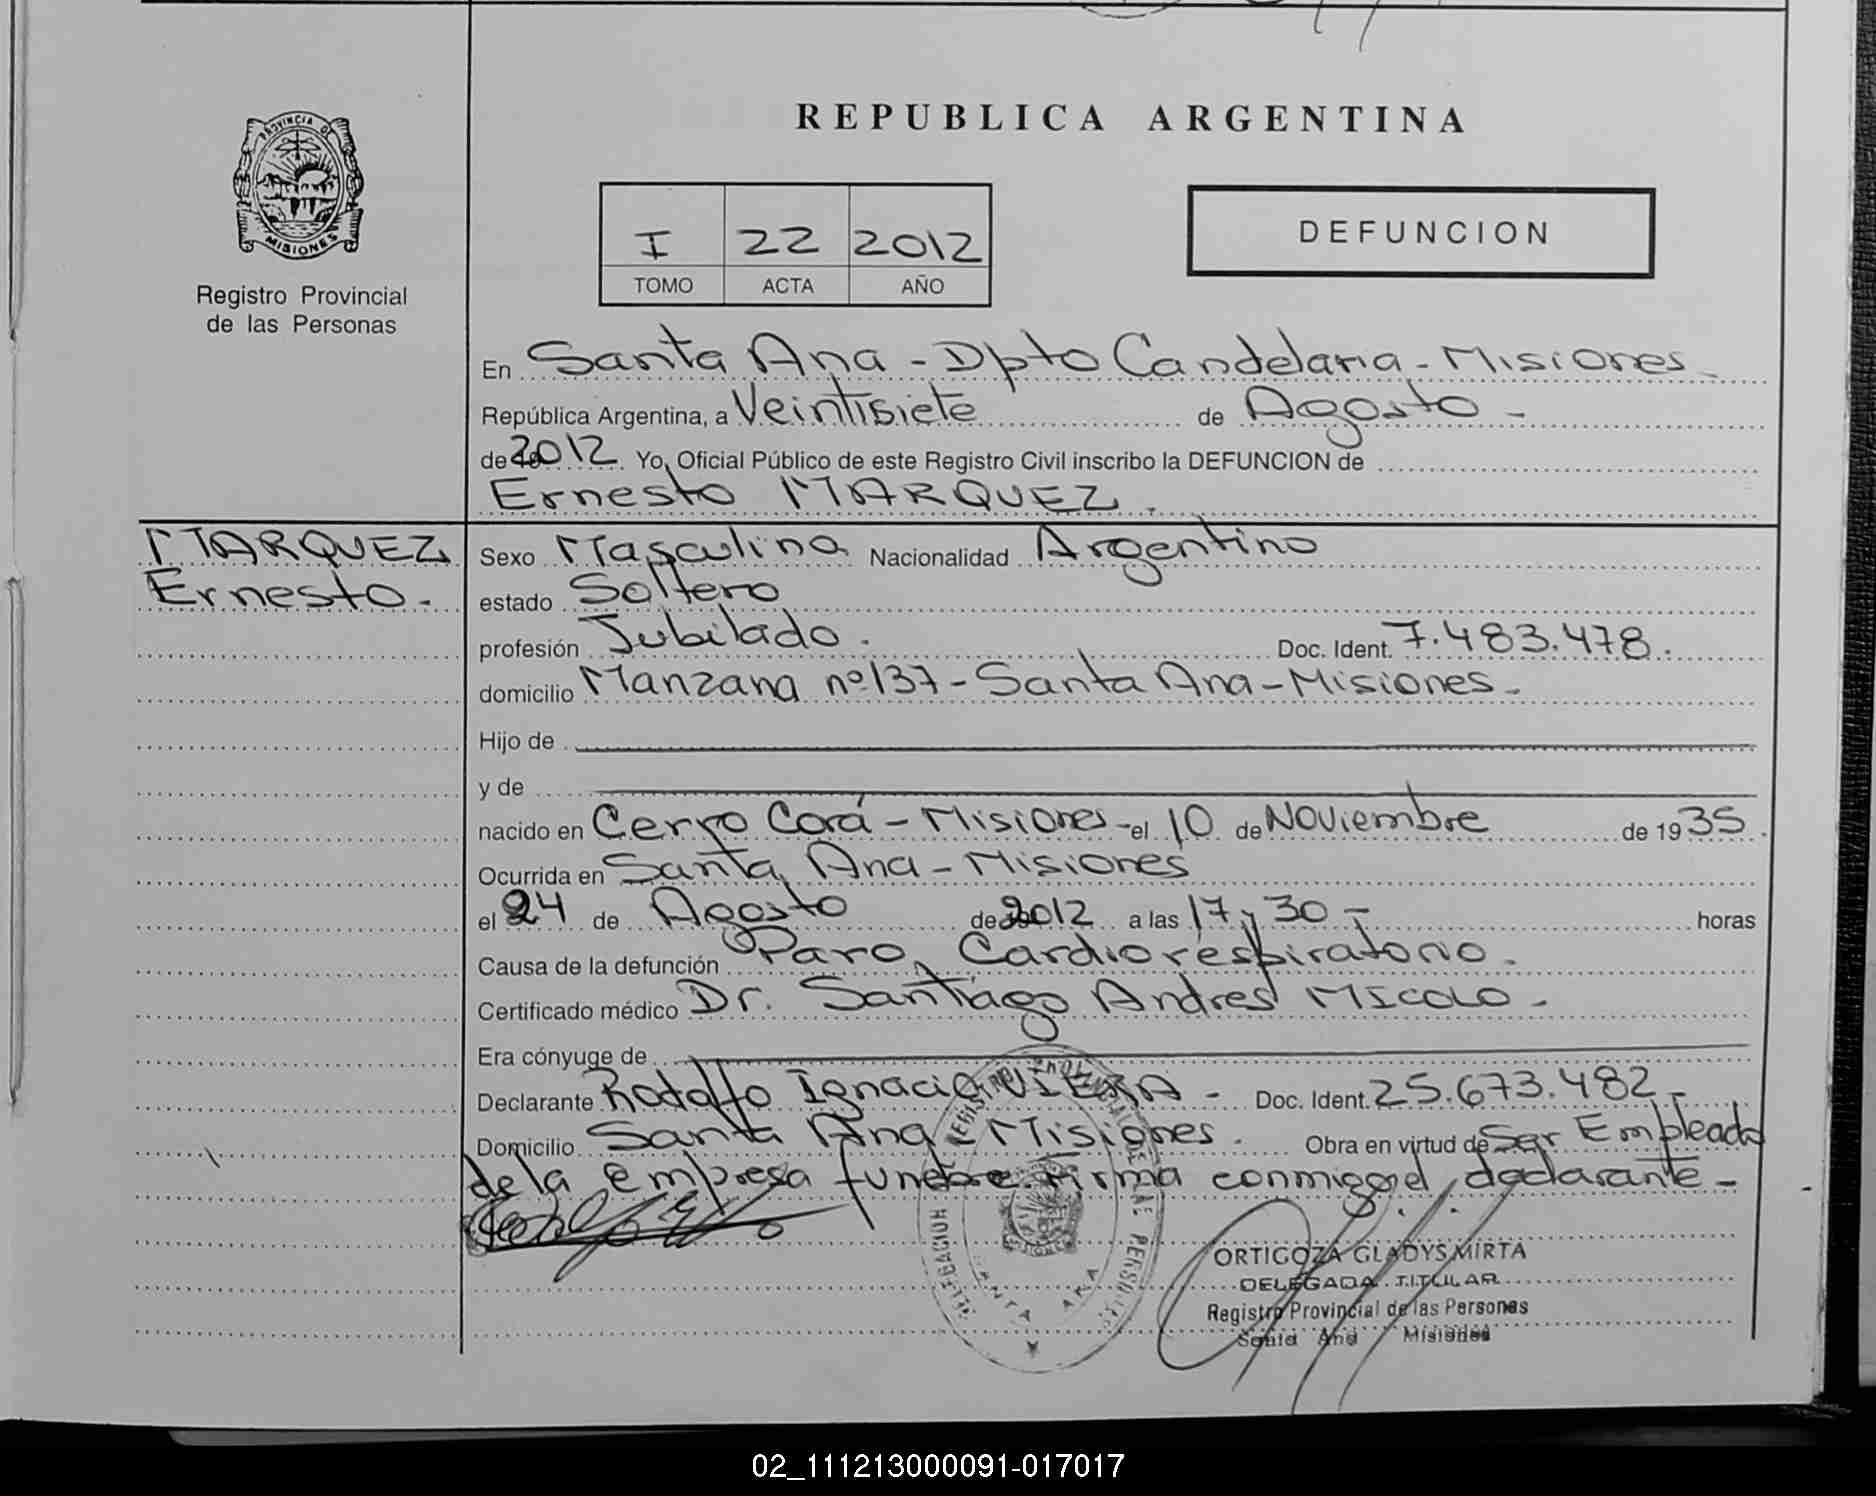 REPUBLICA ARGENTINA
PROVINCIA DE
MISIONES
Registro Provincial
de las Personas
I 22 2012
TOMO ACTA AÑO
DEFUNCION
En Santa Ana - Dpto Candelaria - Misiones
República Argentina, a Veintisiete de Agosto -
de 2012 Yo, Oficial Público de este Registro Civil inscribo la DEFUNCION de
Ernesto MARQUEZ.
MARQUEZ
Ernesto.
Sexo Masculino Nacionalidad Argentino
estado Soltero
profesión Jubilado. Doc. Ident. 7.483.478.
domicilio Manzana nº 137 - Santa Ana - Misiones -
Hijo de
y de
nacido en Cerro Corá - Misiones - el 10 de Noviembre de 1935
Ocurrida en Santa Ana - Misiones
el 24 de Agosto de 2012 a las 17 y 30 - horas
Causa de la defunción Paro Cardiorespiratorio.
Certificado médico Dr. Santiago Andres MICOLO -
Era cónyuge de
Declarante Rodolfo Ignacio VIERA - Doc. Ident. 25.673.482 -
Domicilio Santa Ana - Misiones. Obra en virtud de Ser Empleado
de la empresa funebre. Firma conmigo el declarante -
SANTA ANA
ORTIGOZA GLADYS MIRTA
DELEGADA TITULAR
Registro Provincial de las Personas
Santa Ana Misiones
02_111213000091-017017